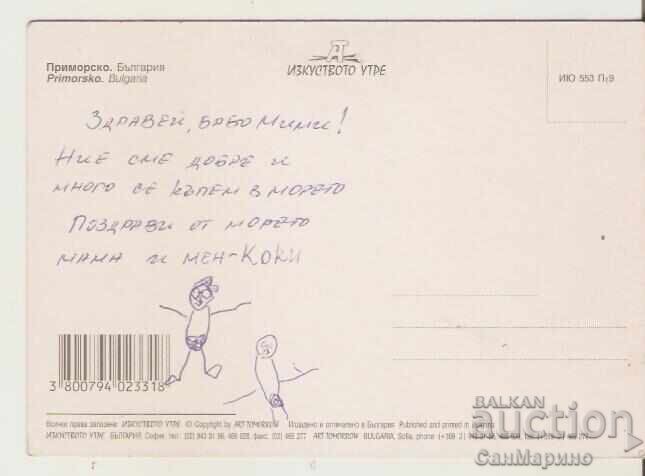 Приморско. България
Primorsko. Bulgaria
ИЗКУСТВОТО УТРЕ
ИЮ 553 П/9
Здравей, бабо Мими!
Ние сме добре и
много се къпем в морето
Поздрави от морето
мама и мен-Коки
3 800794 023318
Всички права запазени ИЗКУСТВОТО УТРЕ © Copyright by ART TOMORROW Издадено и отпечатано в България Published and printed in
ИЗКУСТВОТО УТРЕ БЪЛГАРИЯ, София, тел.: (02) факс: (02) ART TOMORROW BULGARIA, Sofia, phone
BALKAN
auction
СанМарино